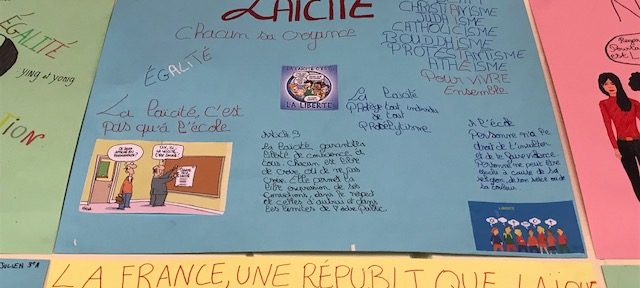 LAÏCITÉ
Chacun sa croyance
ÉGALITÉ
CHRISTIANISME
JUDAÏSME
CATHOLICISME
BOUDDHISME
PROTESTANTISME
ATHÉISME
Pour VIVRE
Ensemble
ÉGALITÉ
ying et yong
La laïcité, c'est
pas qu'à l'école
LA LAÏCITÉ C'EST
LA LIBERTÉ
La laïcité
Protège tout individu
de tout
Prosélytisme
Article 3
La laïcité garantit la
liberté de conscience à
tous. Chacun est libre
de croire ou de ne pas
croire. Elle permet la
libre expression de ses
convictions, dans le respect
de celles d'autrui et dans
les limites de l'ordre public.
A l'école
Personne n'a le
droit de
et de faire violence
Personne ne peut être
exclu à cause de sa
religion, de son sexe ou de
la couleur
JULIEN 3°A
LA FRANCE, UNE RÉPUBLIQUE LAÏQUE